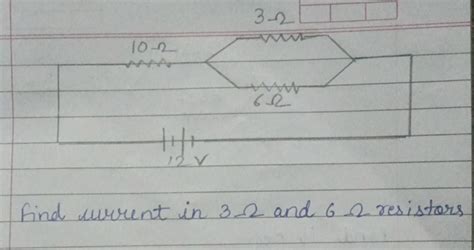 3Ω
10Ω
6Ω
12 V
find current in 3Ω and 6Ω resistors